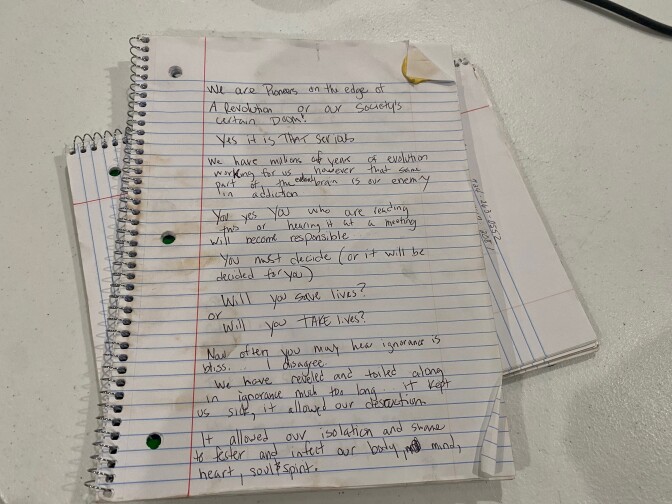 We are Pioneers on the edge of
A Revolution or our society's
certain Doom!
Yes it is THAT serious
We have millions of years of evolution
working for us however that same
part of the brain is our enemy
in addiction
You yes YOU who are reading
this or hearing it at a meeting
will become responsible
You must decide (or it will be
decided for you)
Will you save lives?
or
Will you TAKE lives?
Now often you may hear ignorance is
bliss... I disagree
We have reveled and toiled along
in ignorance much too long... it kept
us sick, it allowed our destruction.
It allowed our isolation and shame
to fester and infect our body, mind,
heart, soul & spirit.